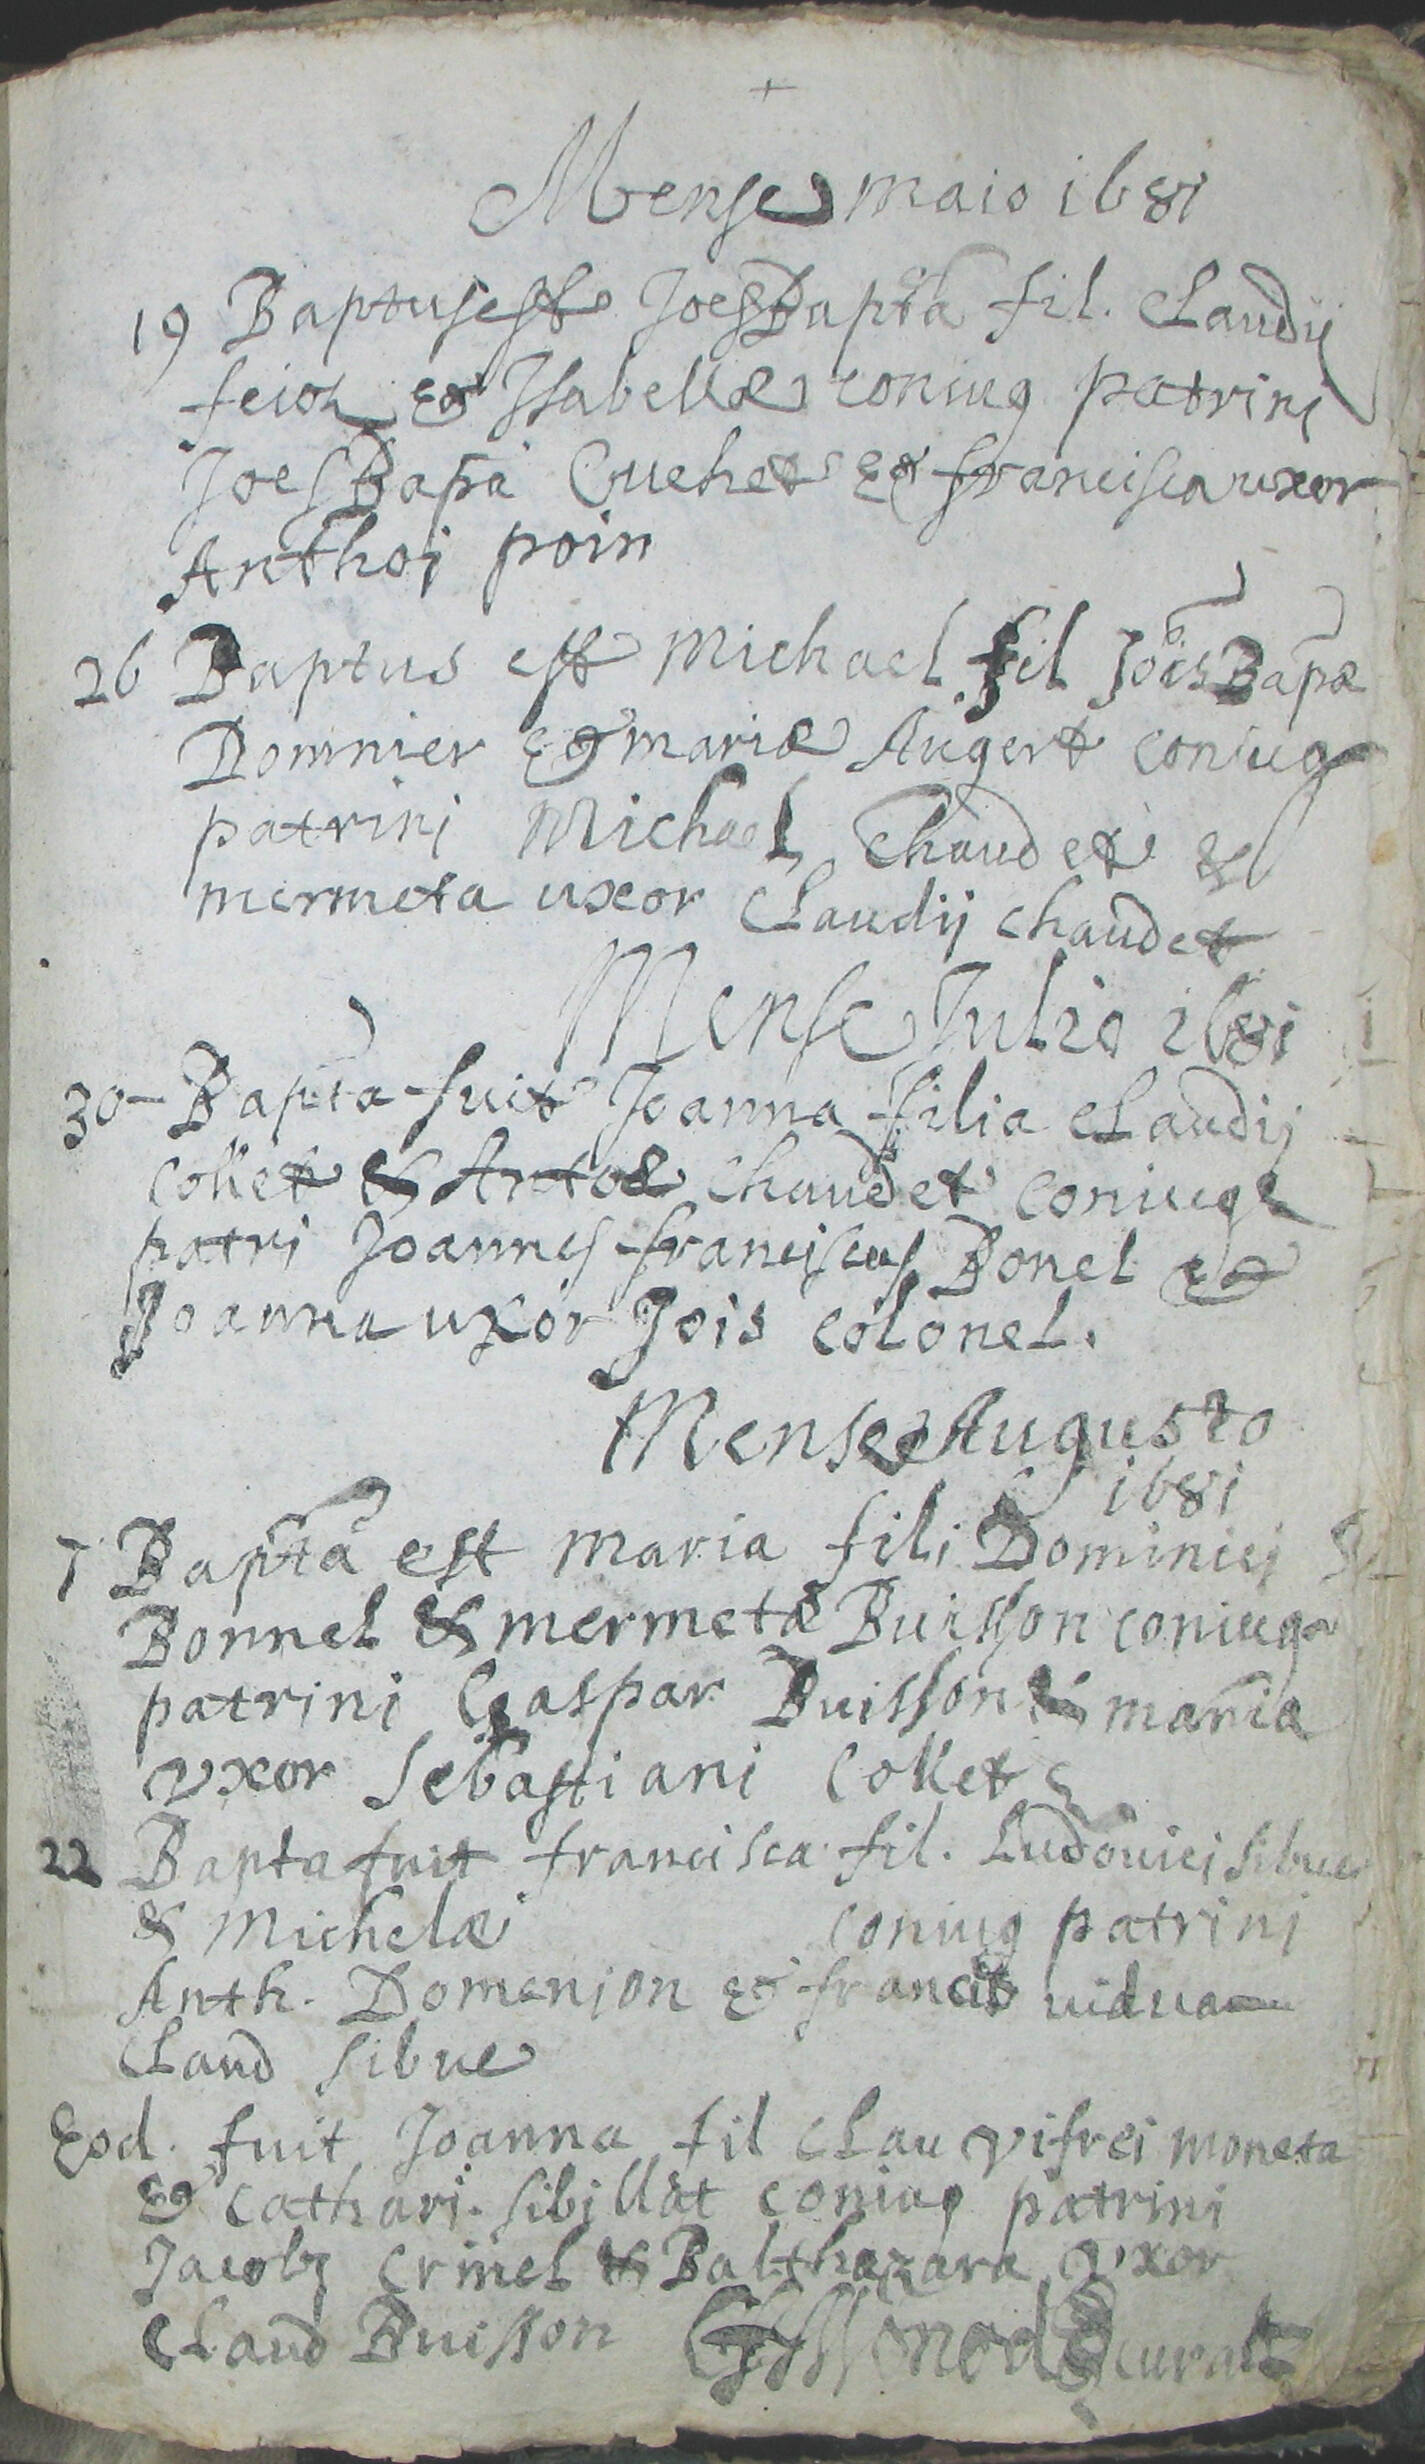 Mense maio 1681
19 Baptus est Joes Bapta fil. Claudij
feioz & Isabellæ coniug patrini
Joes Bapa Cuchet & francisca uxor
Anthoj poin
26 Baptus est Michael fil Jois Bapæ
Domnier & mariæ Augert coniug
patrini Michael Chaudet &
mermeta uxor Claudij chaudet
Mense Julio 1681
30 - Bapta fuit Joanna filia Claudij
collet & Antoæ Chaudet coniug
patri Joannes franciscus Bonel &
Joanna uxor Jois colonel.
Mense Augusto
1681
7 Bapta est maria fili Dominici
Bonnel & mermetæ Buisson coniug
patrini Gaspar Buisson & maria
vxor Sebastiani Collet
22 Bapta fuit francisca fil. Ludouici sibue
& Michelæ coniug patrini
Anth. Domenjon & francis vidua
Claud sibue
Eod. fuit Joanna fil Clau vifrei moneta
& Cathari. sibillat coniug patrini
Jacobz crinel & Balthazara vxor
Claud Buisson curatz